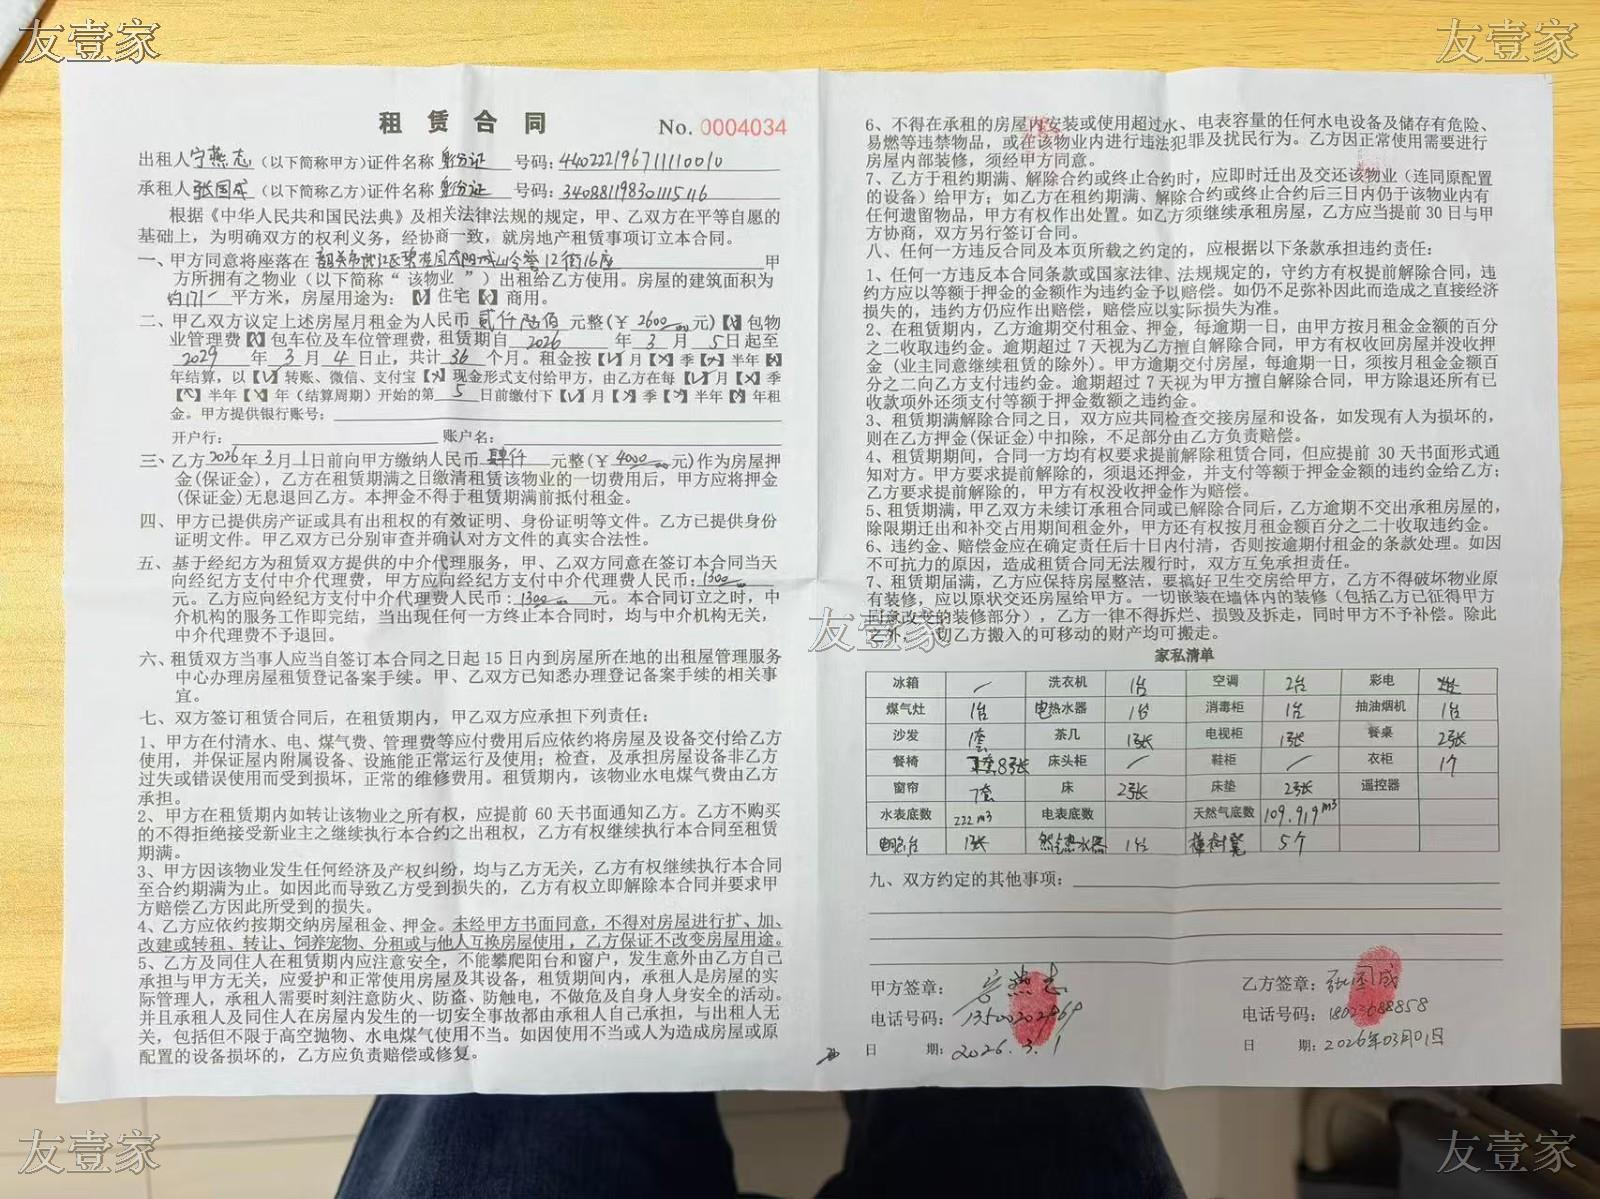 友壹家
友壹家
租赁合同 No. 0004034
出租人宁燕志(以下简称甲方)证件名称 身份证 号码:440222196711110010
承租人张国成(以下简称乙方)证件名称 身份证 号码:340881198301115116
根据《中华人民共和国民法典》及相关法律法规的规定,甲、乙双方在平等自愿的
基础上,为明确双方的权利义务,经协商一致,就房地产租赁事项订立本合同。
一、甲方同意将座落在 韶关市浈江区碧桂园太阳城山令誉12街16座 甲
方所拥有之物业(以下简称“该物业”)出租给乙方使用。房屋的建筑面积为
约171 平方米,房屋用途为:【√】住宅【×】商用。
二、甲乙双方议定上述房屋月租金为人民币 贰仟陆佰 元整(¥2600元)【】包物
业管理费【】包车位及车位管理费,租赁期自 2026 年 3 月 5日起至
2029 年 3 月 4 日止,共计 36 个月。租金按【√】月【×】季【×】半年【×】
年结算,以【√】转账、微信、支付宝【×】现金形式支付给甲方,由乙方在每【√】月【×】季
【×】半年【×】年(结算周期)开始的第 5 日前缴付下【√】月【×】季【×】半年【×】年租
金。甲方提供银行账号:
开户行: 账户名:
三、乙方2026年3月1日前向甲方缴纳人民币 肆仟 元整(¥4000元)作为房屋押
金(保证金),乙方在租赁期满之日缴清租赁该物业的一切费用后,甲方应将押金
(保证金)无息退回乙方。本押金不得于租赁期满前抵付租金。
四、甲方已提供房产证或具有出租权的有效证明、身份证明等文件。乙方已提供身份
证明文件。甲乙双方已分别审查并确认对方文件的真实合法性。
五、基于经纪方为租赁双方提供的中介代理服务,甲、乙双方同意在签订本合同当天
向经纪方支付中介代理费,甲方应向经纪方支付中介代理费人民币:1300
元。乙方应向经纪方支付中介代理费人民币:1300 元。本合同订立之时,中
介机构的服务工作即完结,当出现任何一方终止本合同时,均与中介机构无关,
中介代理费不予退回。
六、租赁双方当事人应当自签订本合同之日起 15 日内到房屋所在地的出租屋管理服务
中心办理房屋租赁登记备案手续。甲、乙双方已知悉办理登记备案手续的相关事
宜。
七、双方签订租赁合同后,在租赁期内,甲乙双方应承担下列责任:
1、甲方在付清水、电、煤气费、管理费等应付费用后应依约将房屋及设备交付给乙方
使用,并保证屋内附属设备、设施能正常运行及使用;检查,及承担房屋设备非乙方
过失或错误使用而受到损坏,正常的维修费用。租赁期内,该物业水电煤气费由乙方
承担。
2、甲方在租赁期内如转让该物业之所有权,应提前 60 天书面通知乙方。乙方不购买
的不得拒绝接受新业主之继续执行本合约之出租权,乙方有权继续执行本合同至租赁
期满。
3、甲方因该物业发生任何经济及产权纠纷,均与乙方无关,乙方有权继续执行本合同
至合约期满为止。如因此而导致乙方受到损失的,乙方有权立即解除本合同并要求甲
方赔偿乙方因此所受到的损失。
4、乙方应依约按期交纳房屋租金、押金。未经甲方书面同意,不得对房屋进行扩、加、
改建或转租、转让、饲养宠物、分租或与他人互换房屋使用,乙方保证不改变房屋用途。
5、乙方及同住人在租赁期内应注意安全,不能攀爬阳台和窗户,发生意外由乙方自己
承担与甲方无关,应爱护和正常使用房屋及其设备,租赁期间内,承租人是房屋的实
际管理人,承租人需要时刻注意防火、防盗、防触电,不做危及自身人身安全的活动。
并且承租人及同住人在房屋内发生的一切安全事故都由承租人自己承担,与出租人无
关,包括但不限于高空抛物、水电煤气使用不当。如因使用不当或人为造成房屋或原
配置的设备损坏的,乙方应负责赔偿或修复。
6、不得在承租的房屋内安装或使用超过水、电表容量的任何水电设备及储存有危险、
易燃等违禁物品,或在该物业内进行违法犯罪及扰民行为。乙方因正常使用需要进行
房屋内部装修,须经甲方同意。
7、乙方于租约期满、解除合约或终止合约时,应即时迁出及交还该物业(连同原配置
的设备)给甲方;如乙方在租约期满、解除合约或终止合约后三日内仍于该物业内有
任何遗留物品,甲方有权作出处置。如乙方须继续承租房屋,乙方应当提前 30 日与甲
方协商,双方另行签订合同。
八、任何一方违反合同及本页所载之约定的,应根据以下条款承担违约责任:
1、任何一方违反本合同条款或国家法律、法规规定的,守约方有权提前解除合同,违
约方应以等额于押金的金额作为违约金予以赔偿。如仍不足弥补因此而造成之直接经济
损失的,违约方仍应作出赔偿,赔偿应以实际损失为准。
2、在租赁期内,乙方逾期交付租金、押金,每逾期一日,由甲方按月租金金额的百分
之二收取违约金。逾期超过 7 天视为乙方擅自解除合同,甲方有权收回房屋并没收押
金(业主同意继续租赁的除外)。甲方逾期交付房屋,每逾期一日,须按月租金金额百
分之二向乙方支付违约金。逾期超过 7 天视为甲方擅自解除合同,甲方除退还所有已
收款项外还须支付等额于押金数额之违约金。
3、租赁期满解除合同之日,双方应共同检查交接房屋和设备,如发现有人为损坏的,
则在乙方押金(保证金)中扣除,不足部分由乙方负责赔偿。
4、租赁期期间,合同一方均有权要求提前解除租赁合同,但应提前 30 天书面形式通
知对方。甲方要求提前解除的,须退还押金,并支付等额于押金金额的违约金给乙方;
乙方要求提前解除的,甲方有权没收押金作为赔偿。
5、租赁期满,甲乙双方未续订承租合同或已解除合同后,乙方逾期不交出承租房屋的,
除限期迁出和补交占用期间租金外,甲方还有权按月租金额百分之二十收取违约金。
6、违约金、赔偿金应在确定责任后十日内付清,否则按逾期付租金的条款处理。如因
不可抗力的原因,造成租赁合同无法履行时,双方互免承担责任。
7、租赁期届满,乙方应保持房屋整洁,要搞好卫生交房给甲方,乙方不得破坏物业原
有装修,应以原状交还房屋给甲方。一切嵌装在墙体内的装修(包括乙方已征得甲方
同意改变的装修部分),乙方一律不得拆烂、损毁及拆走,同时甲方不予补偿。除此
之外,一切乙方搬入的可移动的财产均可搬走。
友壹家
家私清单
冰箱 / 洗衣机 1台 空调 2台 彩电
煤气灶 1台 电热水器 1台 消毒柜 1台 抽油烟机 1台
沙发 1套 茶几 1张 电视柜 1张 餐桌 2张
餐椅 8张 床头柜 / 鞋柜 / 衣柜 1个
窗帘 7套 床 2张 床垫 2张 遥控器
水表底数 222m3 电表底数 天然气底数 109.919m3
1张 燃气热水器 1台 5个
九、双方约定的其他事项:
甲方签章:宁燕志 乙方签章:张国成
电话号码: 电话号码:
日 期:2026.3.1 日 期:2026年03月01日
友壹家
友壹家